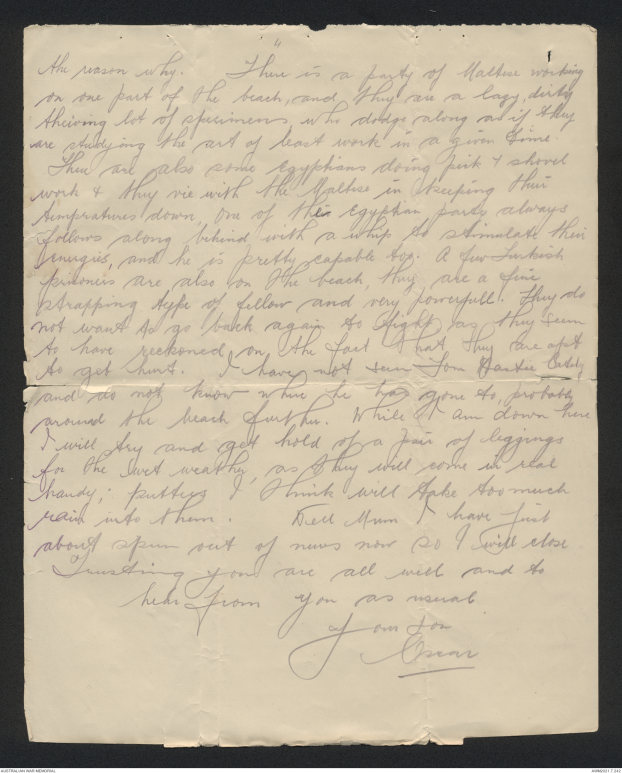 4
the reason why. There is a party of Maltese working
on one part of the beach, and they are a lazy, dirty
theiving lot of specimens, who dodge along as if they
are studying the art of least work in a given time.
There are also some Egyptians doing pick & shovel
work & they vie with the Maltese in keeping their
tempratures down, one of the Egyptian party always
follows along behind with a whip to stimulate their
energies, and he is pretty capable too. A few Turkish
prisoners are also on the beach, they are a fine
strapping type of fellow and very powerfull. They do
not want to go back again to fight as they seem
to have reckoned on the fact that they are apt
to get hurt. I have not seen Tom lately
and do not know where he has gone to, probably
around the beach further. While I am down here
I will try and get hold of a pair of leggings
for the wet weather, as they will come in real
handy; puttees I think will take too much
rain into them. Well Mum I have just
about spun out of news now so I will close
Trusting you are all well and to
hear from you as usual
Your son
Oscar
AUSTRALIAN WAR MEMORIAL